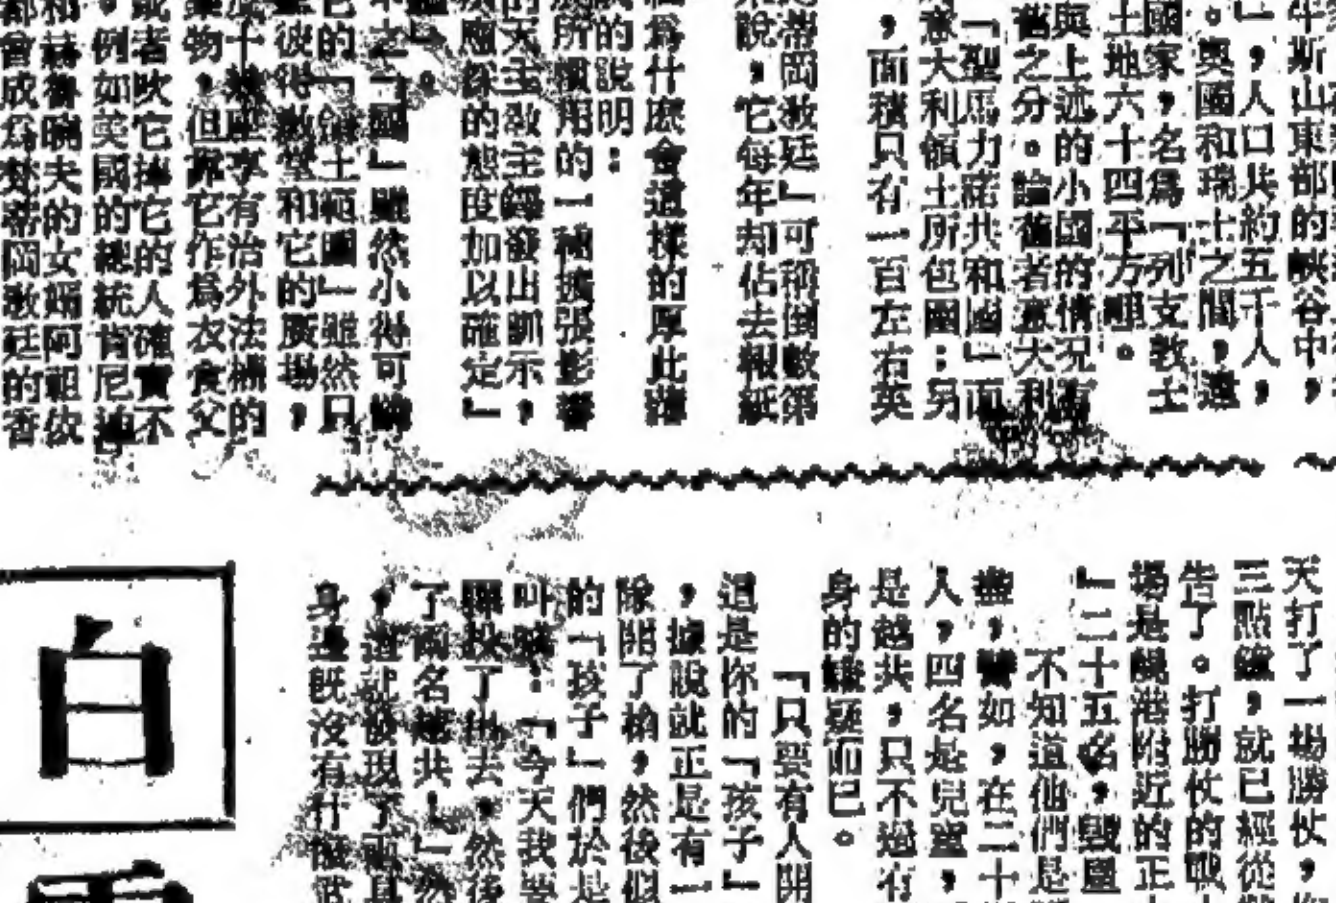 牛斯山東部的峽谷中，
」，人口共約五千人，
。奧國和瑞士之間，還
國家，名爲「列支敦士
土地六十四平方哩。
與上述的小國的情況有
舊之分。論舊者意大利
「聖馬力諾共和國」而
意大利領土所包圍；另
，面積只有一百左右英
蒂岡敎廷」可稱倒數第
說，它每年却佔去報紙
爲什麽會這樣的厚此薄
的說明：
所慣用的一種擴張影響
的天主敎宗經發出訓示，
應採的態度加以確定」
之「國」雖然小得可憐
它的「領土範圍」雖然只
彼得敎堂和它的廣場，
十幾座享有治外法權的
物，但靠它作爲衣食父
或者吹它捧它的人確實不
例如英國的總統肯尼迪
和赫魯曉夫的女婿阿祖依
都曾成爲梵蒂岡敎廷的香
天打了一場勝仗，
三點鐘，就已經從
告了。打勝仗的戰
場是峴港附近的正
」二十五名，
不知道他們是
盡，譬如，在二十
人，四名是兒童，
是越共，只不過有
身的嫌疑而已。
「只要有人開
這是你的「孩子」
，據說就正是有一
隊開了槍，然後似
的「孩子」們於是
叫喊：「今天我要
彈投了出去，然後
了兩名越共！」然
，這就發現了
身邊旣沒有什
白